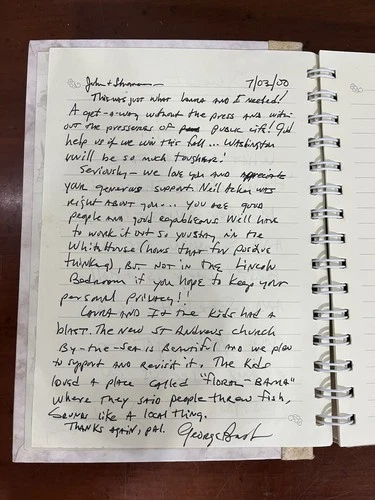 John + Shannon — 7/03/00
This was just what Laura and I needed!
A get-a-way without the press and with-
out the pressures of public life! God
help us if we win this fall... Washington
will be so much tougher!
Seriously - we love you and appreciate
your generous support. Neil Eken was
right about you... you are good
people and good republicans. We'll have
to work it out so you stay in the
White House (hows that for positive
thinking), But not in the Lincoln
Bedroom if you hope to keep your
personal privacy!!
Laura and I & the kids had a
blast. The new St Andrews church
By-the-Sea is beautiful and we plan
to support and revisit it. The kids
loved a place called "Floral-Bama"
where they said people threw fish,
Sounds like a local thing.
Thanks again, pal. George Bush